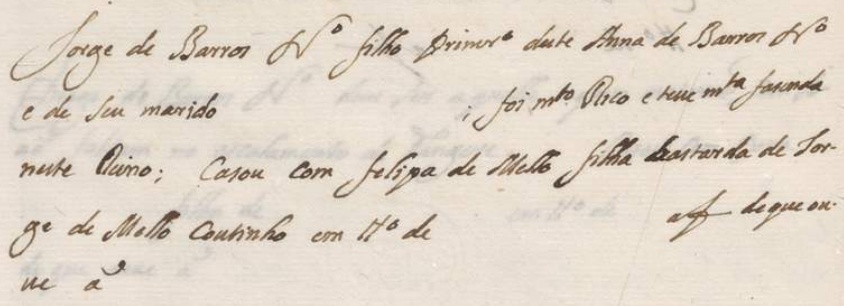 Jorge de Barros Nº filho Primrº deste Anna de Barros Nº
e de seu marido ; foi mto Rico e teve mta fasenda
neste Reino; Casou com felipa de Mello filha bastarda de Jor-
ge de Mello Coutinho em tº de af de que ou-
ve aº